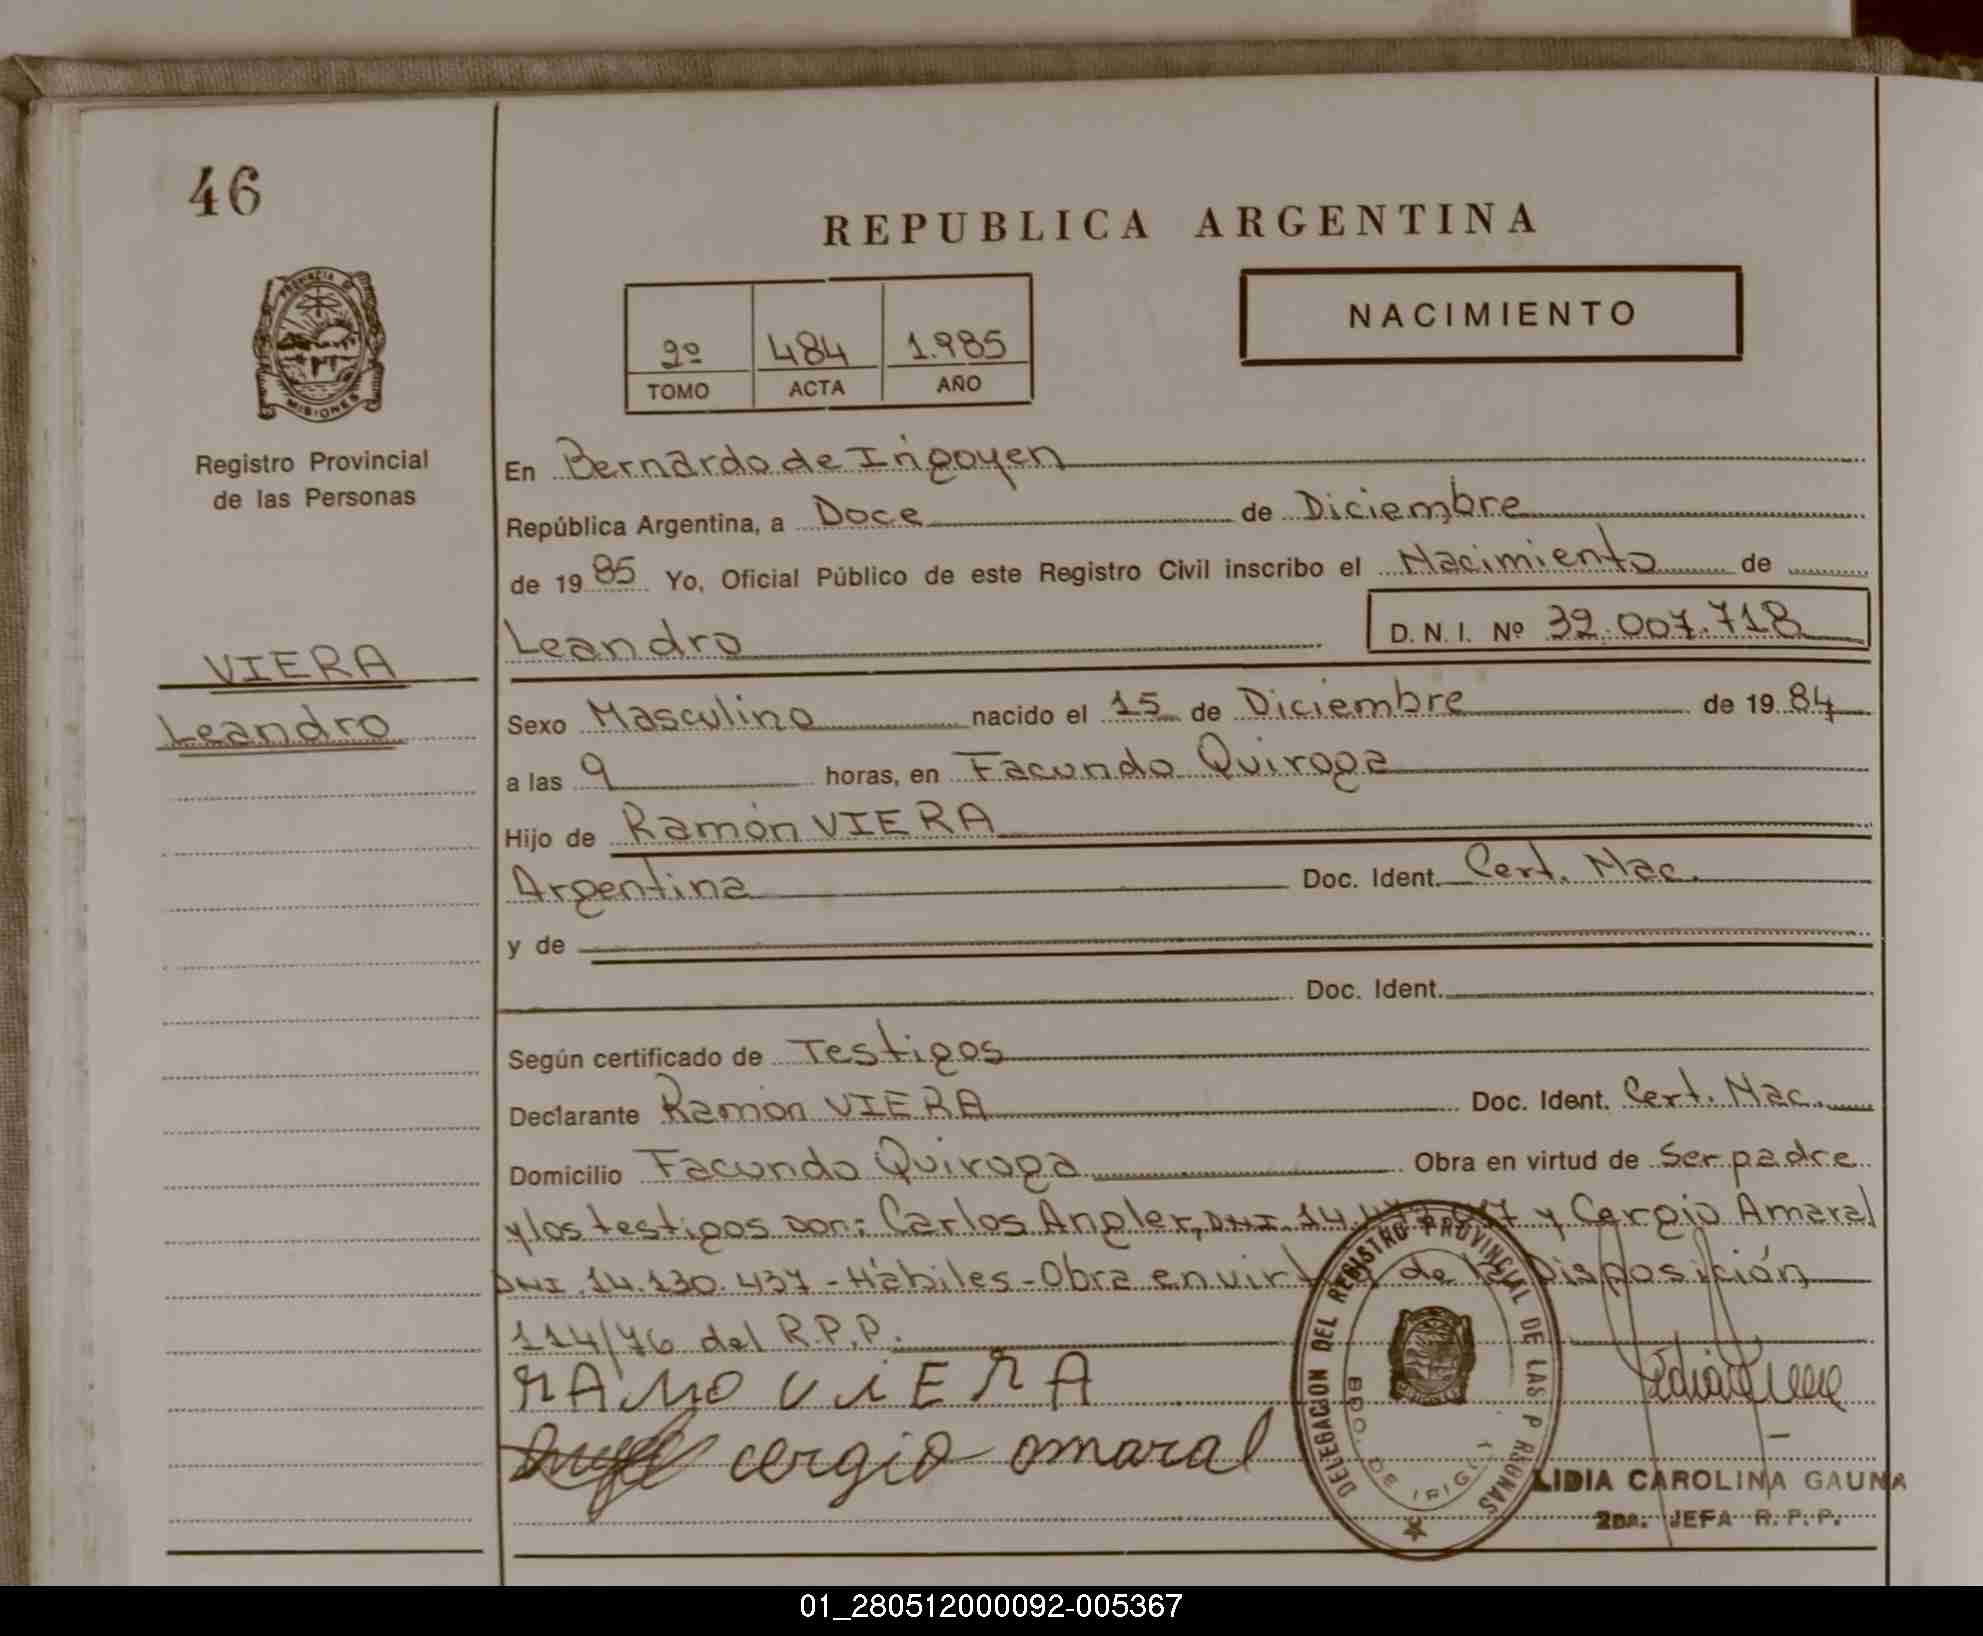 46
REPUBLICA ARGENTINA
NACIMIENTO
2º 484 1.985
TOMO ACTA AÑO
PROVINCIA DE
MISIONES
Registro Provincial
de las Personas
En Bernardo de Irigoyen
República Argentina, a Doce de Diciembre
de 19 85 Yo, Oficial Público de este Registro Civil inscribo el Nacimiento de
Leandro D. N. I. Nº 32.007.718
VIERA
Leandro
Sexo Masculino nacido el 15 de Diciembre de 19 84
a las 9 horas, en Facundo Quiroga
Hijo de Ramón VIERA
Argentina Doc. Ident. Cert. Nac.
y de
Doc. Ident.
Según certificado de Testigos
Declarante Ramón VIERA Doc. Ident. Cert. Nac.
Domicilio Facundo Quiroga Obra en virtud de Ser padre
y los testigos son: Carlos Angler, DNI. 14. y Cergio Amaral
DNI. 14.130.437 - Hábiles - Obra en virtud de la Disposición
114/76 del R.P.P.
RAMO ViERA
cergio amaral
DELEGACION DEL REGISTRO PROVINCIAL DE LAS P RSONAS
BDO. DE IRIG
LIDIA CAROLINA GAUNA
2DA. JEFA R. P. P.
01_280512000092-005367